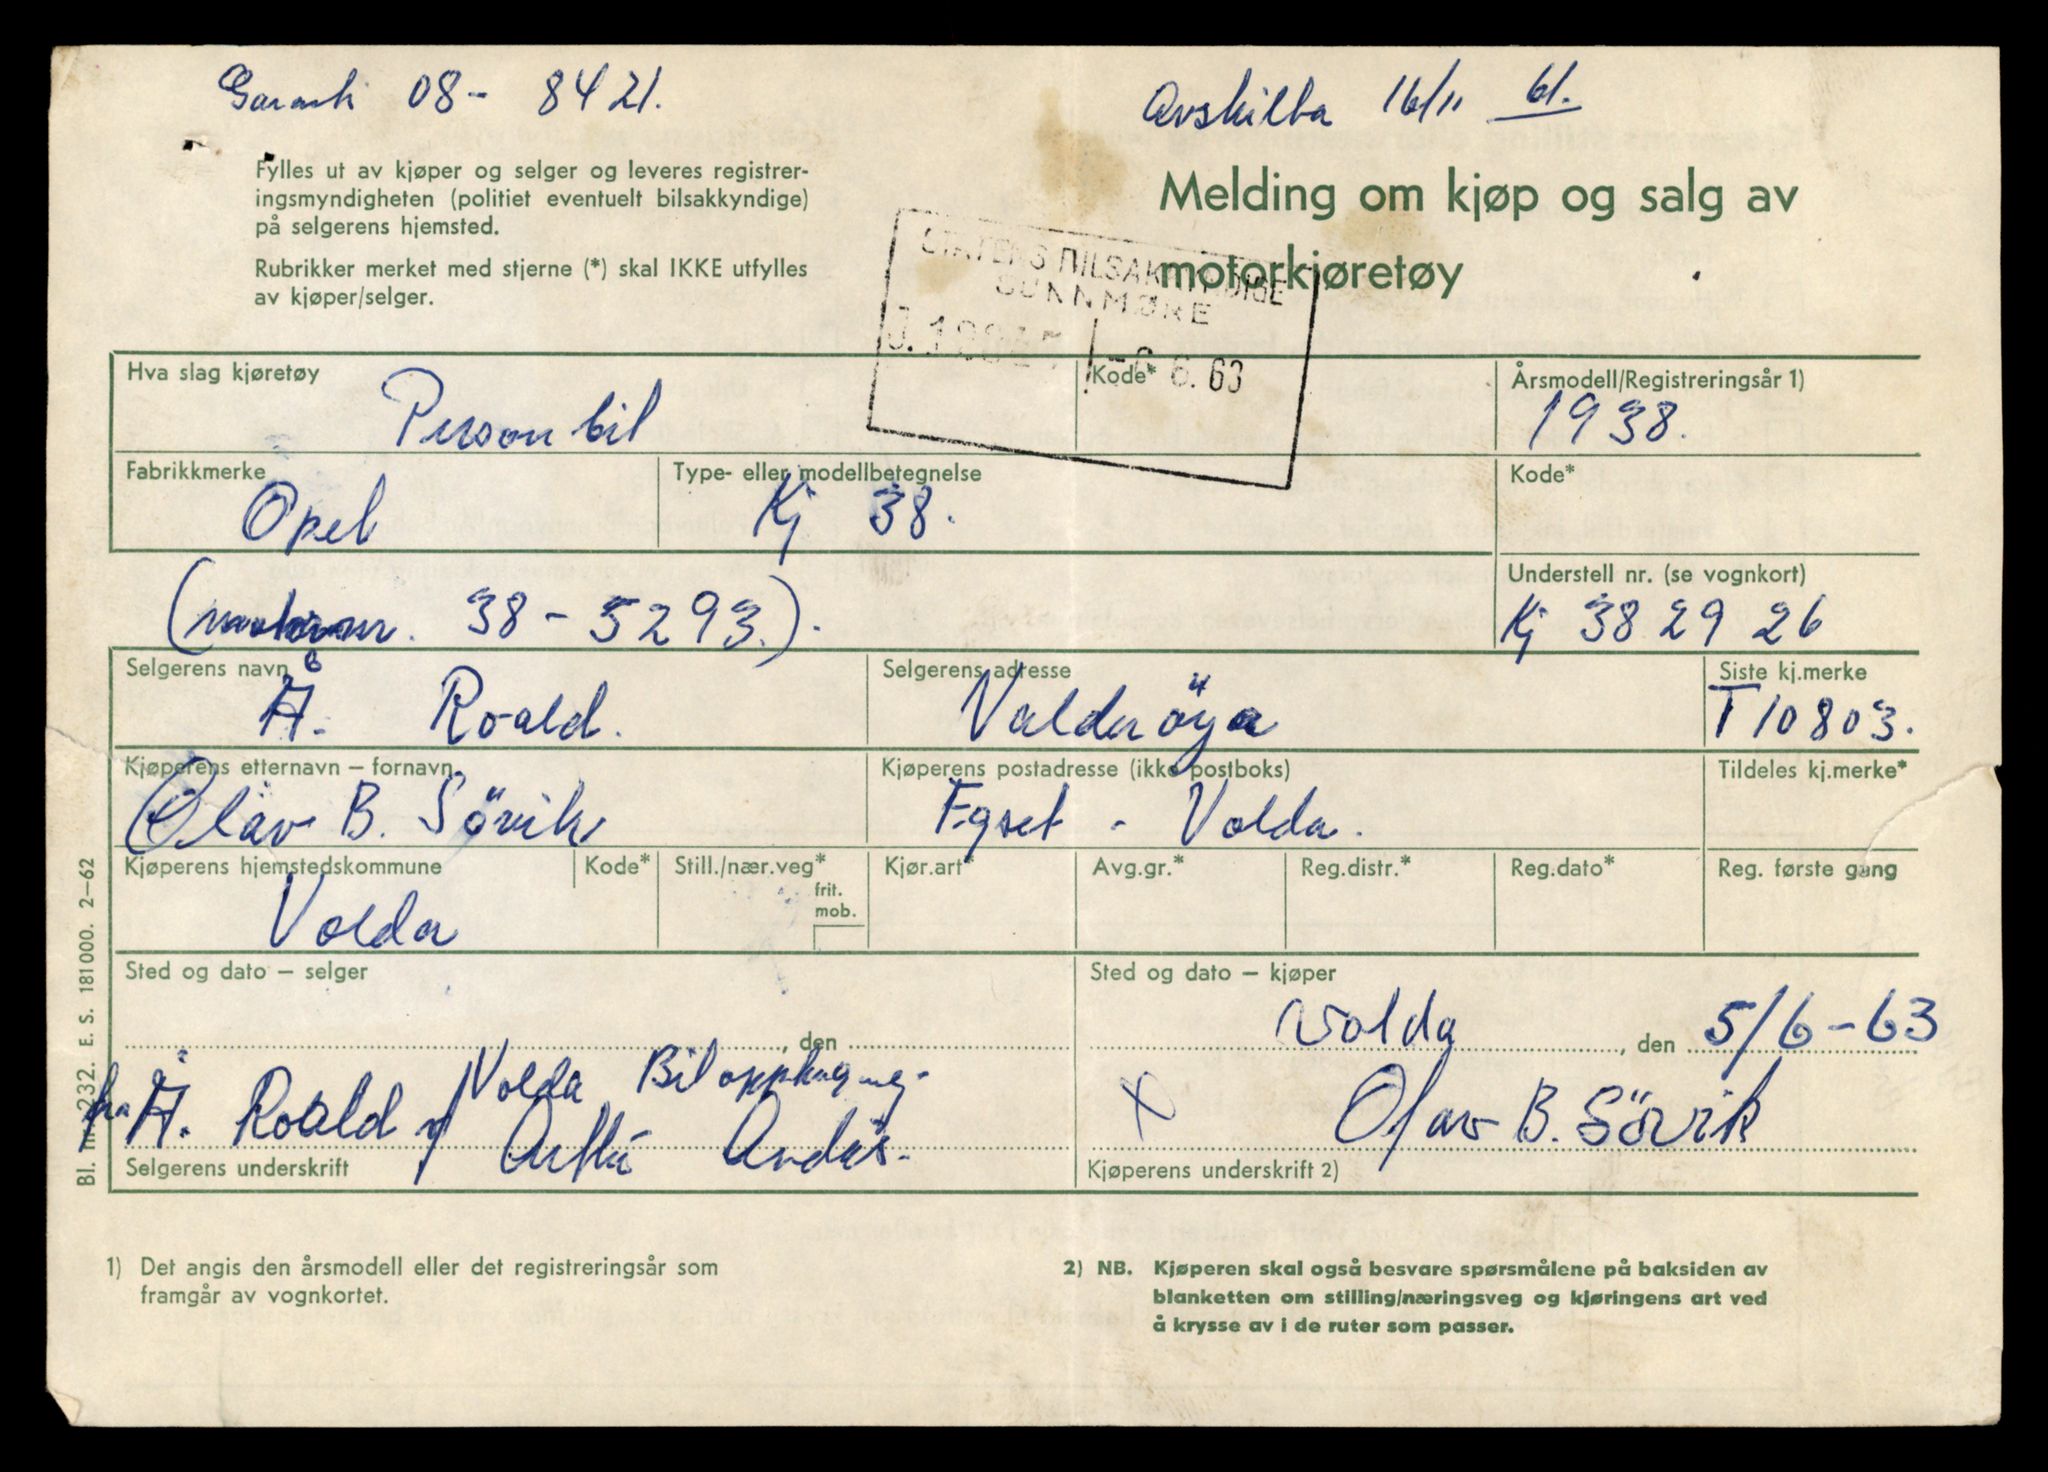 Garanti 08- 8421.
Avskilta 16/11 61.
Fylles ut av kjøper og selger og leveres registrer-
ingsmyndigheten (politiet eventuelt bilsakkyndige)
på selgerens hjemsted.
Rubrikker merket med stjerne (*) skal IKKE utfylles
av kjøper/selger.
Melding om kjøp og salg av
motorkjøretøy
STATENS BILSAKKYNDIGE
SUNNMØRE
-6 6. 63
Hva slag kjøretøy
Personbil
Kode*
Årsmodell/Registreringsår 1)
1938.
Fabrikkmerke
Opel
Type- eller modellbetegnelse
Kj 38.
Kode*
(motornr. 38-5293.).
Understell nr. (se vognkort)
Kj 38 29 26
Selgerens navn
Å. Roald.
Selgerens adresse
Valderöya
Siste kj.merke
T 10803.
Kjøperens etternavn – fornavn
Olav B. Sövik
Kjøperens postadresse (ikke postboks)
Egset - Volda.
Tildeles kj.merke*
Kjøperens hjemstedskommune
Volda
Kode*
Still./nær.veg*
frit.
mob.
Kjør.art*
Avg.gr.*
Reg.distr.*
Reg.dato*
Reg. første gang
Sted og dato – selger
, den
Sted og dato – kjøper
Volda, den 5/6-63
fra Å. Roald Volda Bilopphugging.
Selgerens underskrift
X Olav B. Sövik
Kjøperens underskrift 2)
Bl. nr. 232. E. S. 181000. 2–62
1) Det angis den årsmodell eller det registreringsår som
framgår av vognkortet.
2) NB. Kjøperen skal også besvare spørsmålene på baksiden av
blanketten om stilling/næringsveg og kjøringens art ved
å krysse av i de ruter som passer.